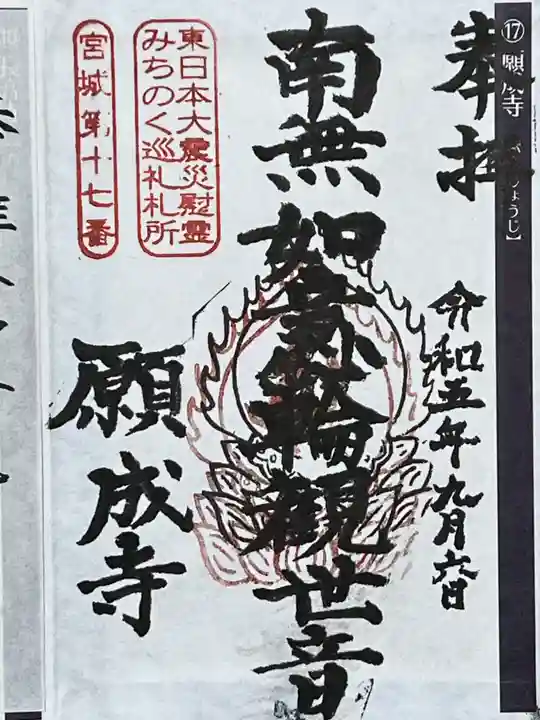 ⑰願成寺
じょうじ】
奉拝
令和五年九月六日
南無如意輪観世音
東日本大震災慰霊
みちのく巡礼札所
宮城第十七番
願成寺